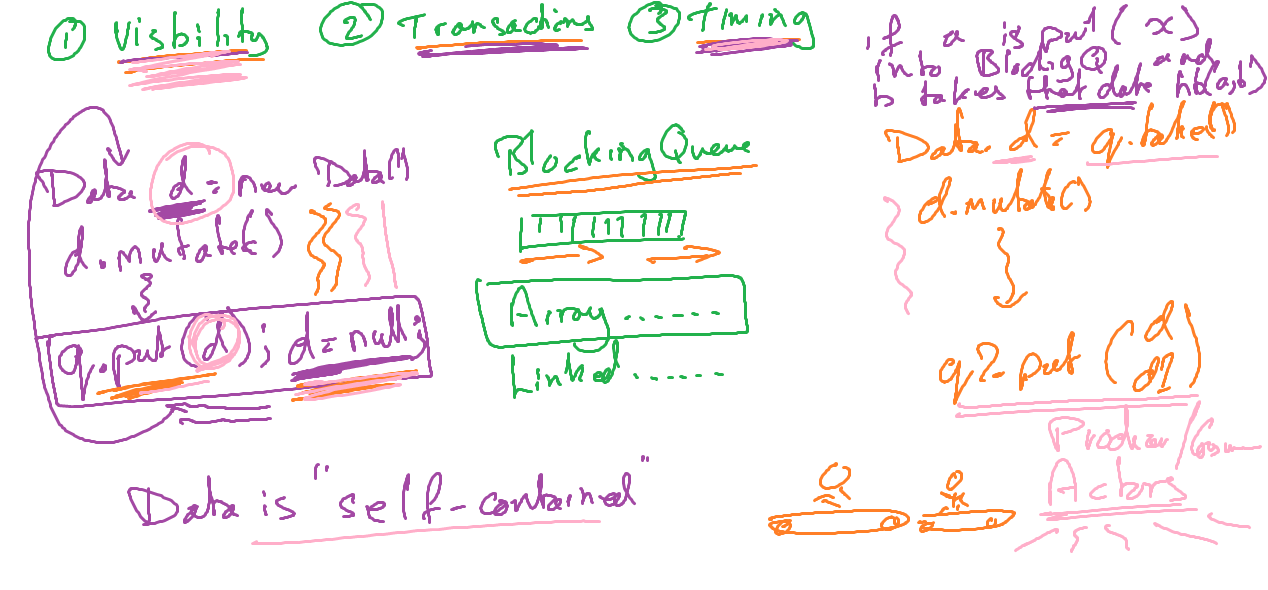 ① Visbility ② Transactions ③ Timing
if a is put(x)
into BlockigQ and
b takes that data hb(a,b)
Data d = new Data()
d.mutate()
q.put(d); d=null;
BlockingQueue
Array ......
Linked ......
Data d = q.take()
d.mutate()
q2.put(d
d2)
Producer/
Actors
Data is "self-contained"